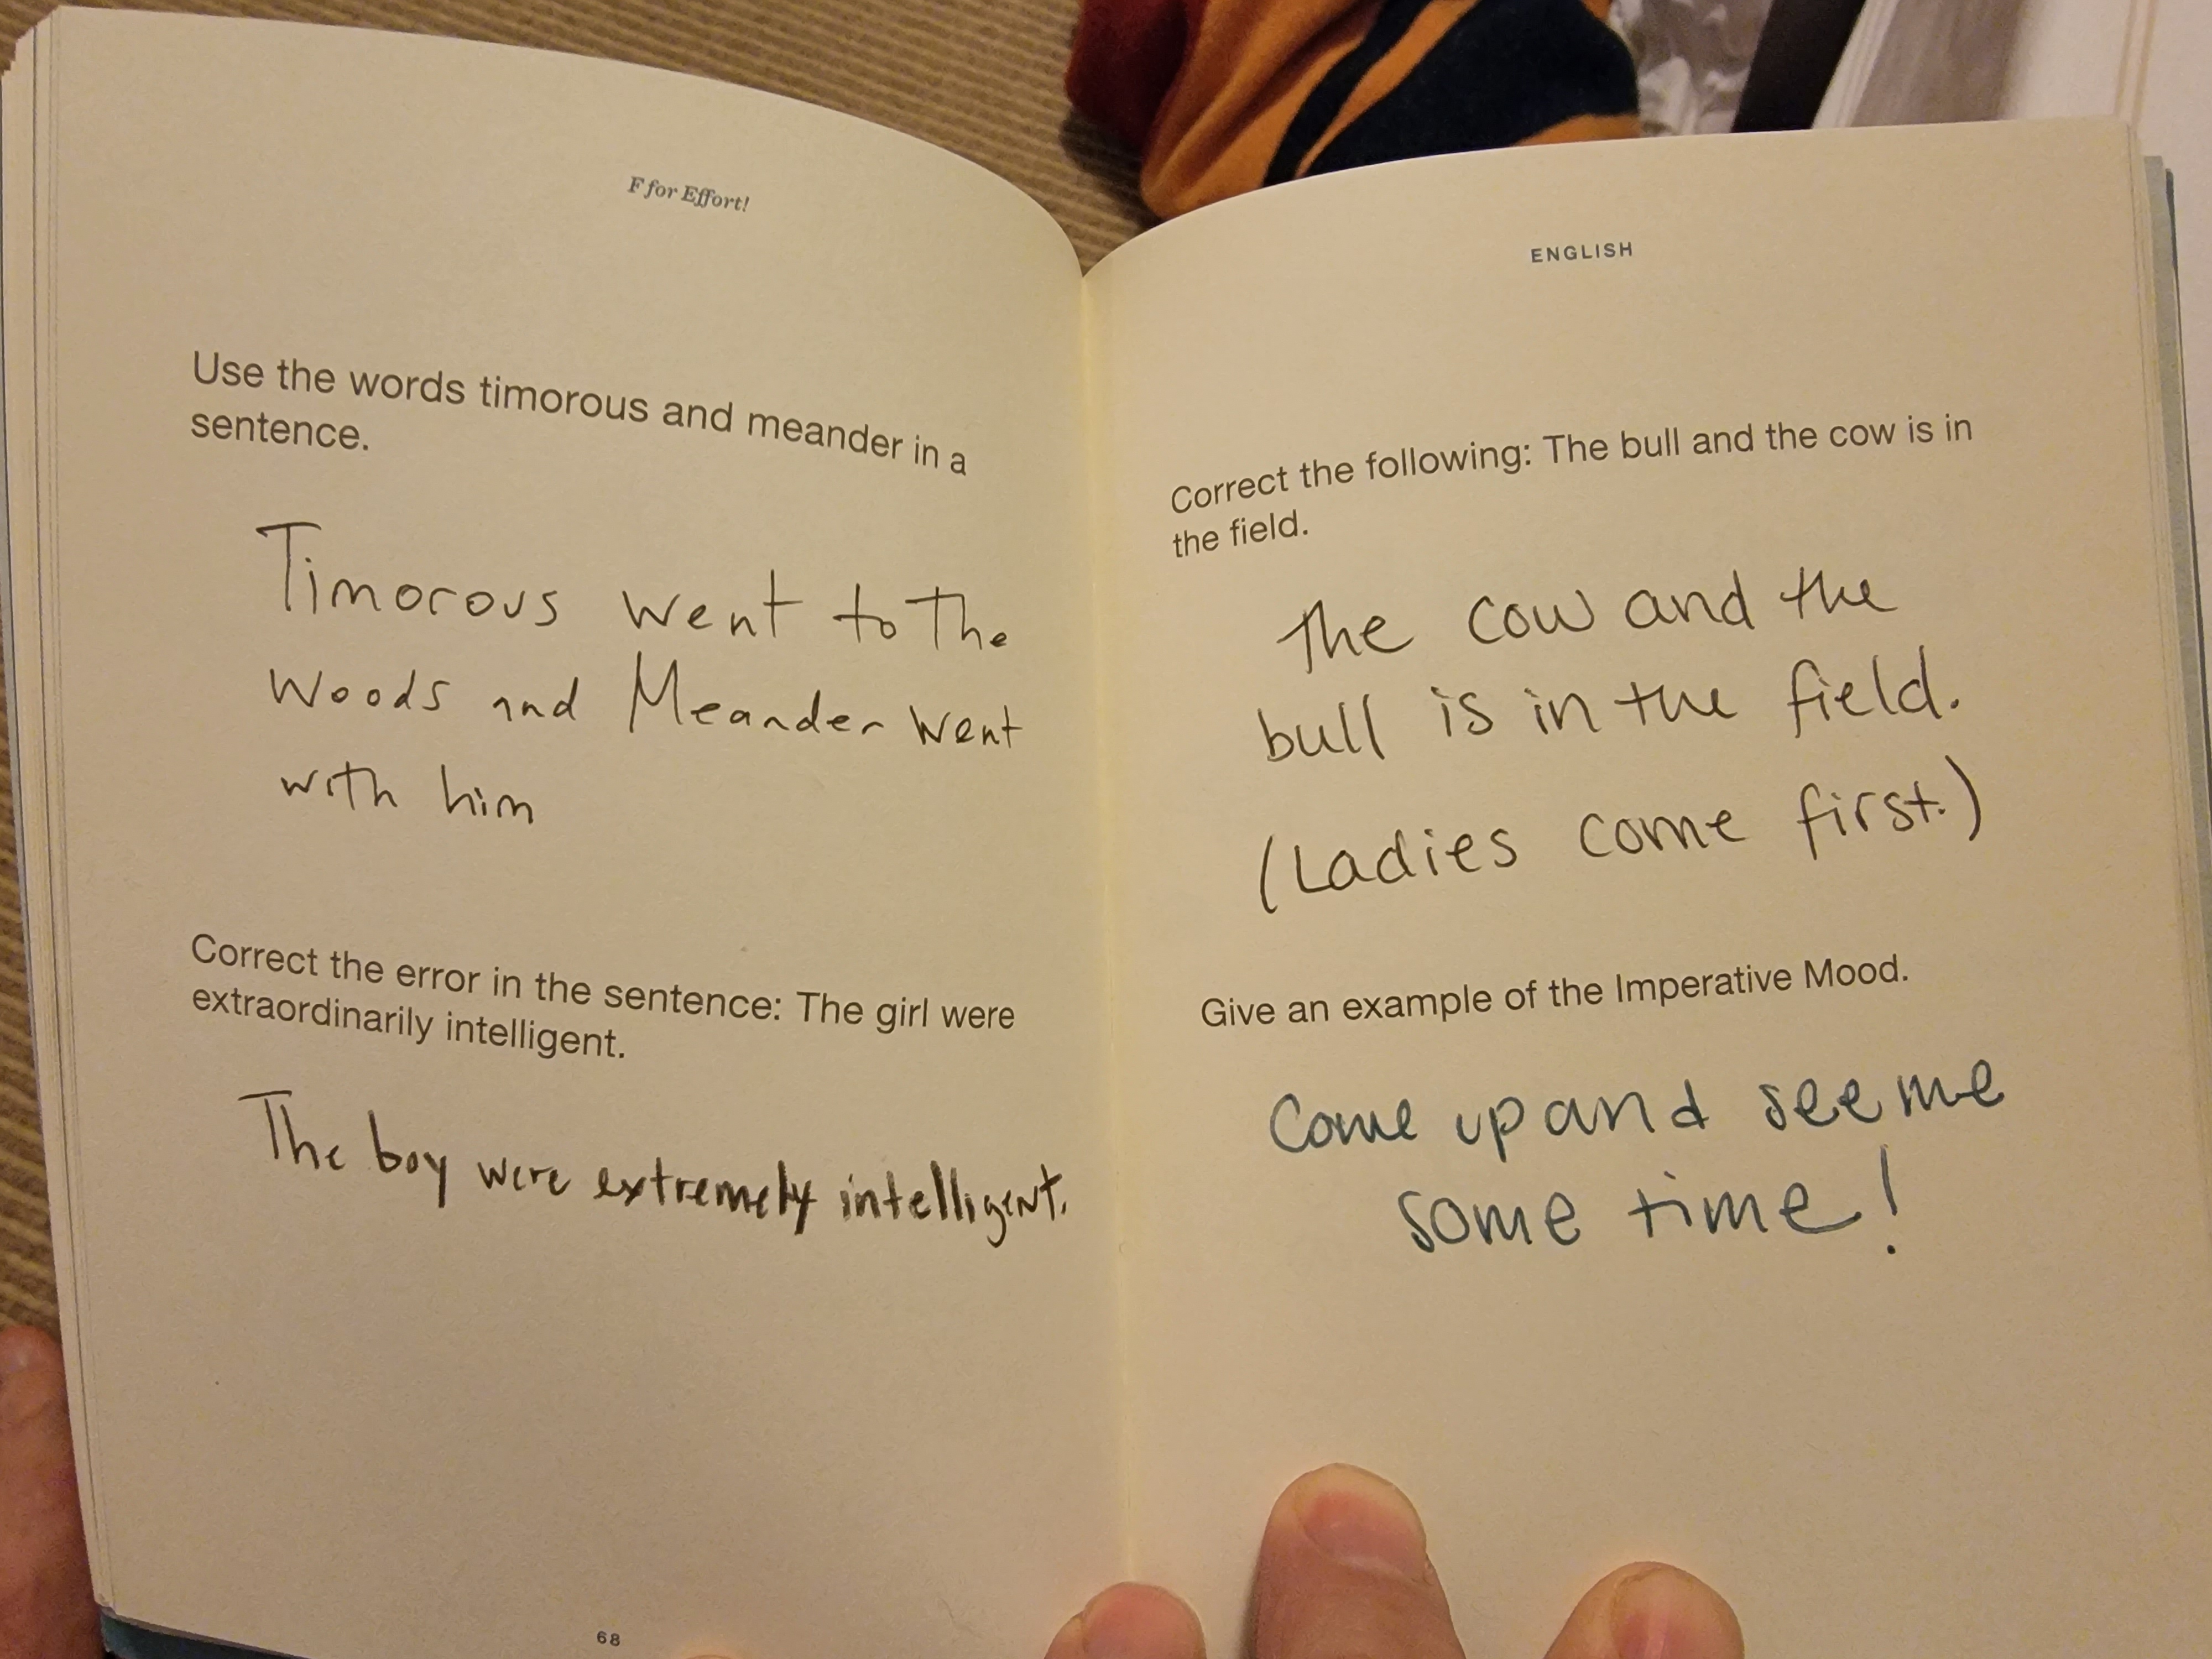 F for Effort!
Use the words timorous and meander in a
sentence.
Timorous went to the
Woods and Meander went
with him
Correct the error in the sentence: The girl were
extraordinarily intelligent.
The boy were extremely intelligent.
68
ENGLISH
Correct the following: The bull and the cow is in
the field.
The cow and the
bull is in the field.
(Ladies come first.)
Give an example of the Imperative Mood.
Come up and see me
some time!